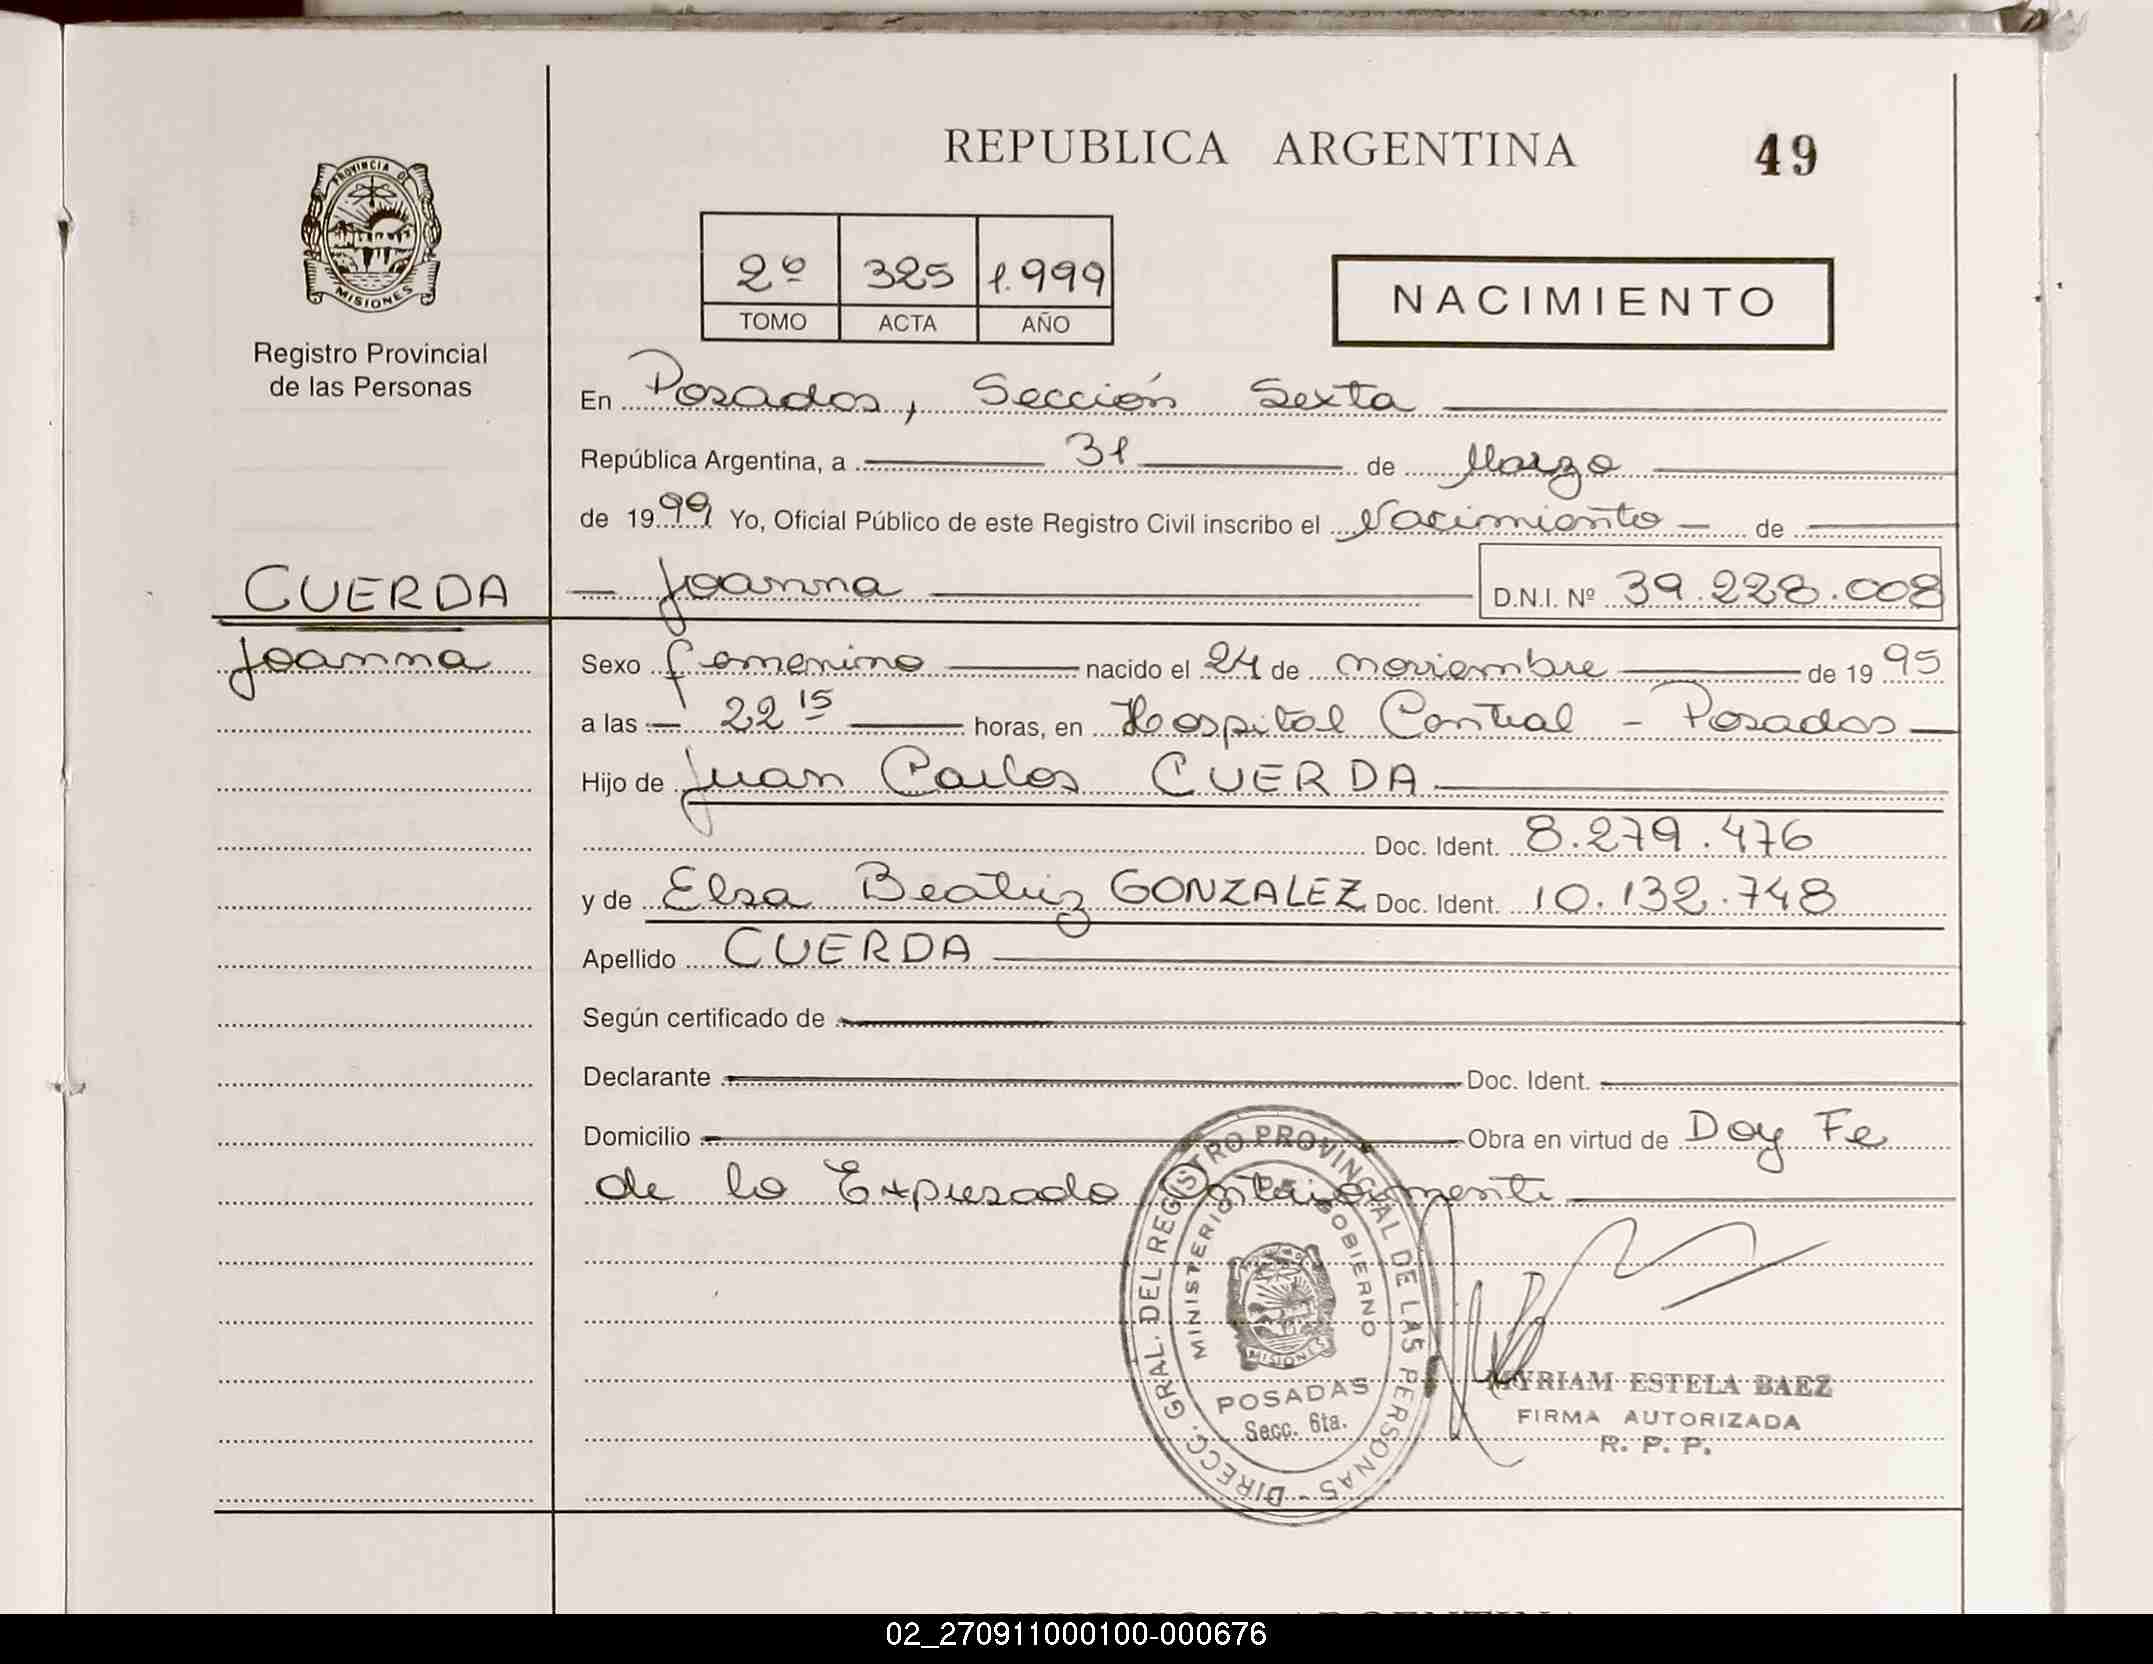 REPUBLICA ARGENTINA
49
PROVINCIA DE
MISIONES
Registro Provincial
de las Personas
2º 325 1.999
TOMO ACTA AÑO
NACIMIENTO
En Posadas, Sección Sexta
República Argentina, a 31 de Marzo
de 1999 Yo, Oficial Público de este Registro Civil inscribo el Nacimiento de
CUERDA
Joanna D.N.I. Nº 39.228.008
Joanna
Sexo femenino nacido el 24 de noviembre de 1995
a las 22 15 horas, en Hospital Central - Posadas
Hijo de Juan Carlos CUERDA
Doc. Ident. 8.279.476
y de Elsa Beatriz GONZALEZ Doc. Ident. 10.132.748
Apellido CUERDA
Según certificado de
Declarante Doc. Ident.
Domicilio Obra en virtud de Doy Fe
de lo Expresado Anteriormente
DIRECC. GRAL. DEL REGISTRO PROVINCIAL DE LAS PERSONAS -
MINISTERIO DE GOBIERNO
MISIONES
POSADAS
Secc. 6ta.
MYRIAM ESTELA BAEZ
FIRMA AUTORIZADA
R. P. P.
02_270911000100-000676